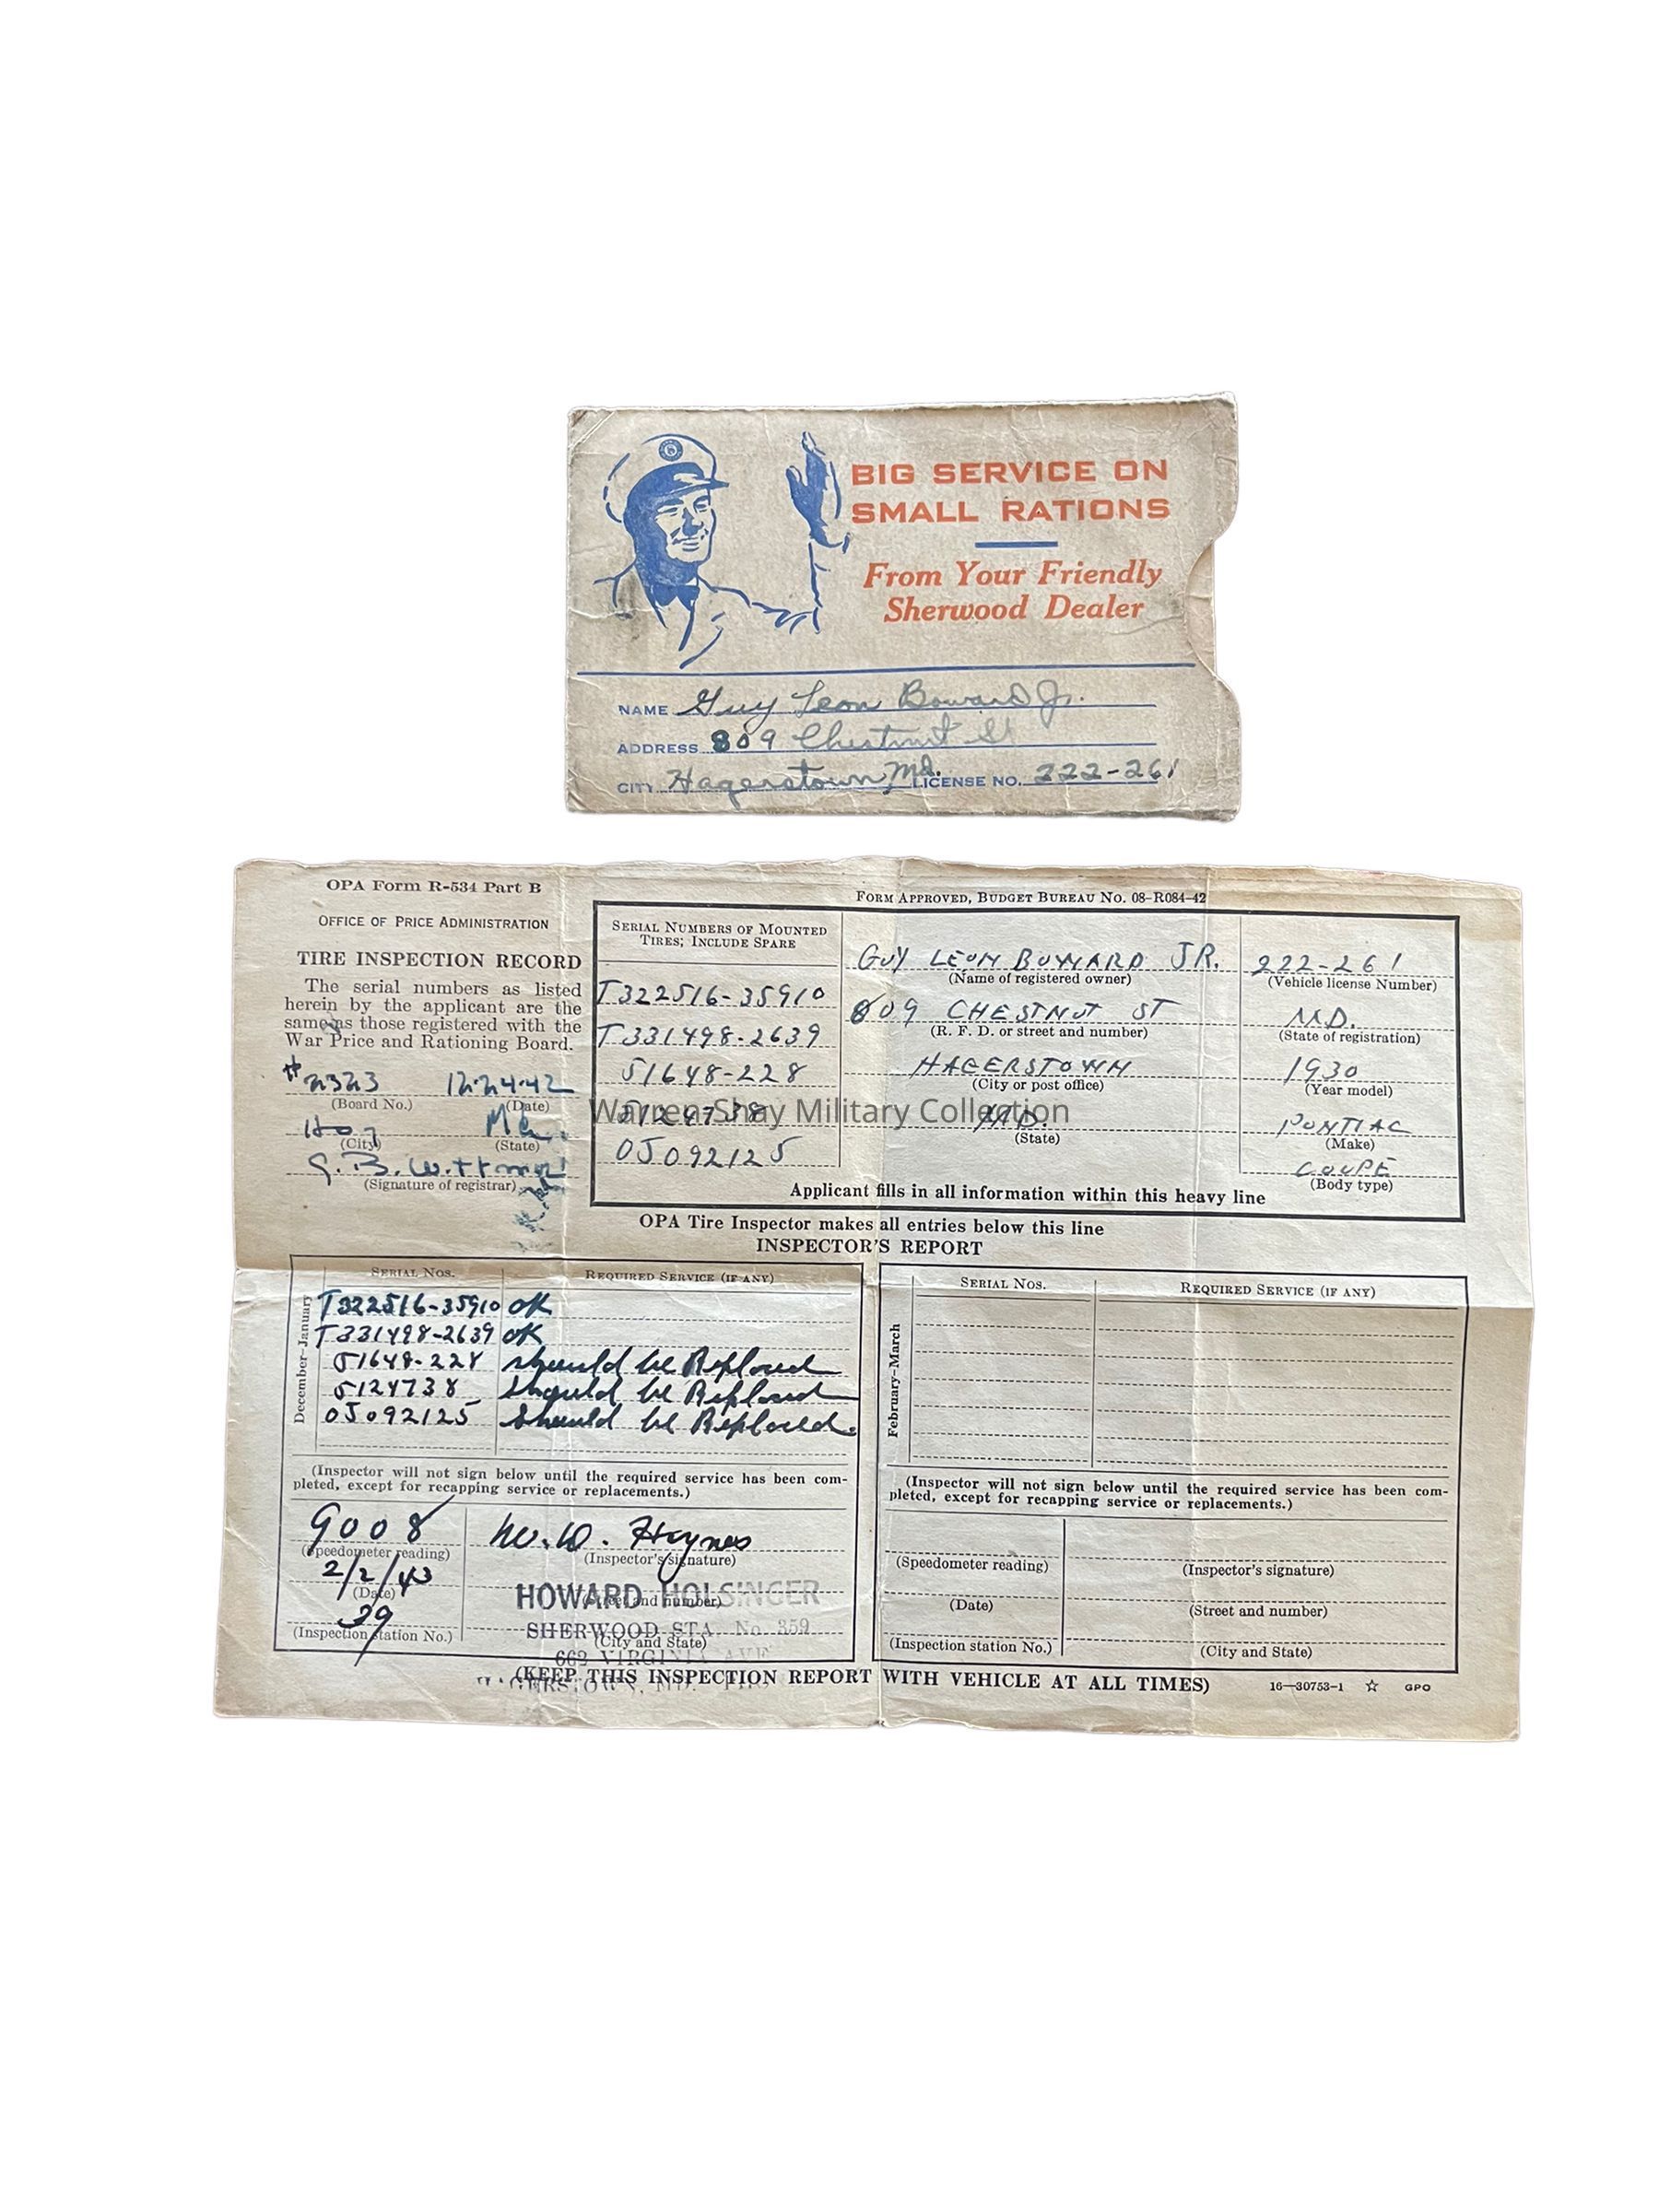 BIG SERVICE ON
SMALL RATIONS
From Your Friendly
Sherwood Dealer
NAME Guy Leon Boward Jr.
ADDRESS 809 Chestnut St
CITY Hagerstown Md. LICENSE NO. 222-261
OPA Form R-534 Part B
OFFICE OF PRICE ADMINISTRATION
TIRE INSPECTION RECORD
The serial numbers as listed
herein by the applicant are the
same as those registered with the
War Price and Rationing Board.
#2323 12-24-42
(Board No.) (Date)
Hag Md.
(City) (State)
G. B.
(Signature of registrar)
FORM APPROVED, BUDGET BUREAU NO. 08-R084-42
SERIAL NUMBERS OF MOUNTED
TIRES; INCLUDE SPARE
T322516-35910
T331498-2639
51648-228
5124738
OJ092125
GUY LEON BOWARD JR.
(Name of registered owner)
809 CHESTNUT ST
(R. F. D. or street and number)
HAGERSTOWN
(City or post office)
MD.
(State)
222-261
(Vehicle license Number)
MD.
(State of registration)
1930
(Year model)
PONTIAC
(Make)
COUPE
(Body type)
Applicant fills in all information within this heavy line
Warren-Shay Military Collection
OPA Tire Inspector makes all entries below this line
INSPECTOR'S REPORT
December-January
SERIAL NOS. REQUIRED SERVICE (IF ANY)
T322516-35910 OK
T331498-2639 OK
51648-228 should be Replaced
5124738 should be Replaced
OJ092125 should be Replaced.
(Inspector will not sign below until the required service has been com-
pleted, except for recapping service or replacements.)
9008
(Speedometer reading)
2/2/43
(Date)
39
(Inspection station No.)
W. D. Haynes
(Inspector's signature)
HOWARD HOLSINGER
(Street and number)
SHERWOOD STA. No. 359
(City and State)
662 VIRGINIA AVE
HAGERSTOWN, MD.
February-March
SERIAL NOS. REQUIRED SERVICE (IF ANY)
(Inspector will not sign below until the required service has been com-
pleted, except for recapping service or replacements.)
(Speedometer reading) (Inspector's signature)
(Date) (Street and number)
(Inspection station No.) (City and State)
(KEEP THIS INSPECTION REPORT WITH VEHICLE AT ALL TIMES)
16—30753-1 ☆ GPO